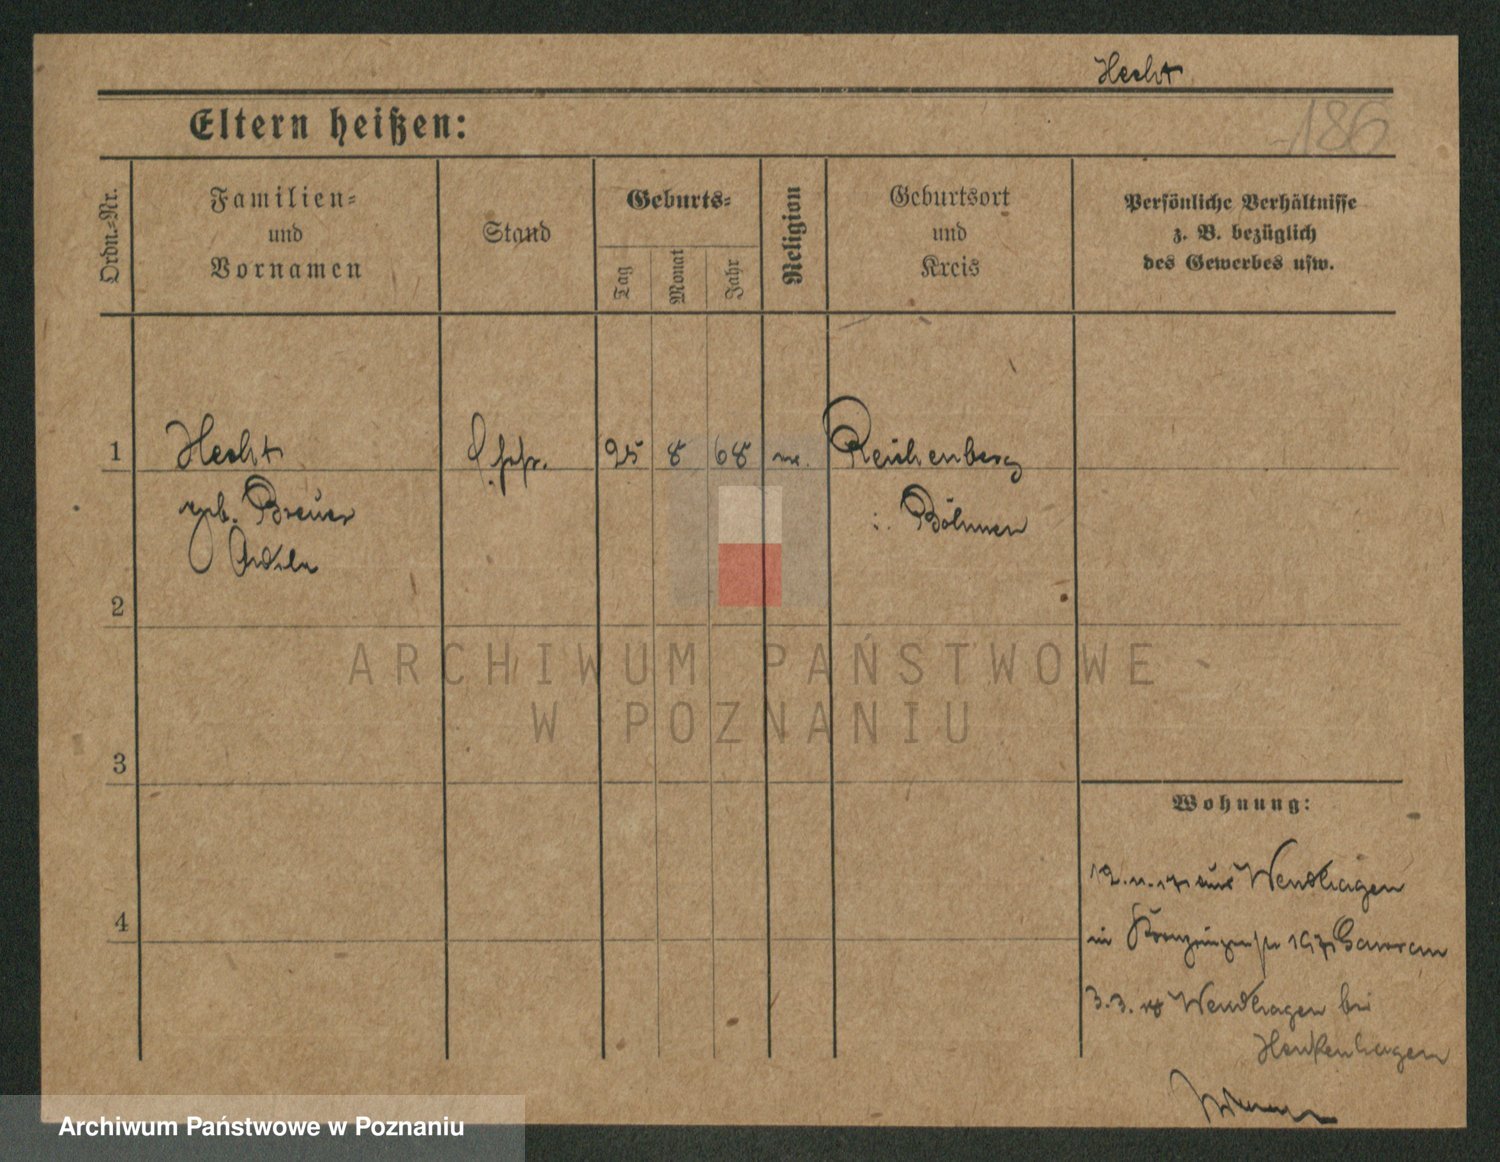 Hecht
186
Eltern heißen:
Ordn.-Nr.
Familien-
und
Vornamen
Stand
Geburts-
Tag
Monat
Jahr
Religion
Geburtsort
und
Kreis
Persönliche Verhältnisse
z. B. bezüglich
des Gewerbes usw.
1
Hecht
25 8 68
Reichenberg
geb. Breuer
i. Böhmen
Adele
2
ARCHIWUM PAŃSTWOWE
W POZNANIU
3
Wohnung:
12.11.17 aus Wendhagen
4
in
3.3.18 Wendhagen bei
Henkenhagen
Archiwum Państwowe w Poznaniu